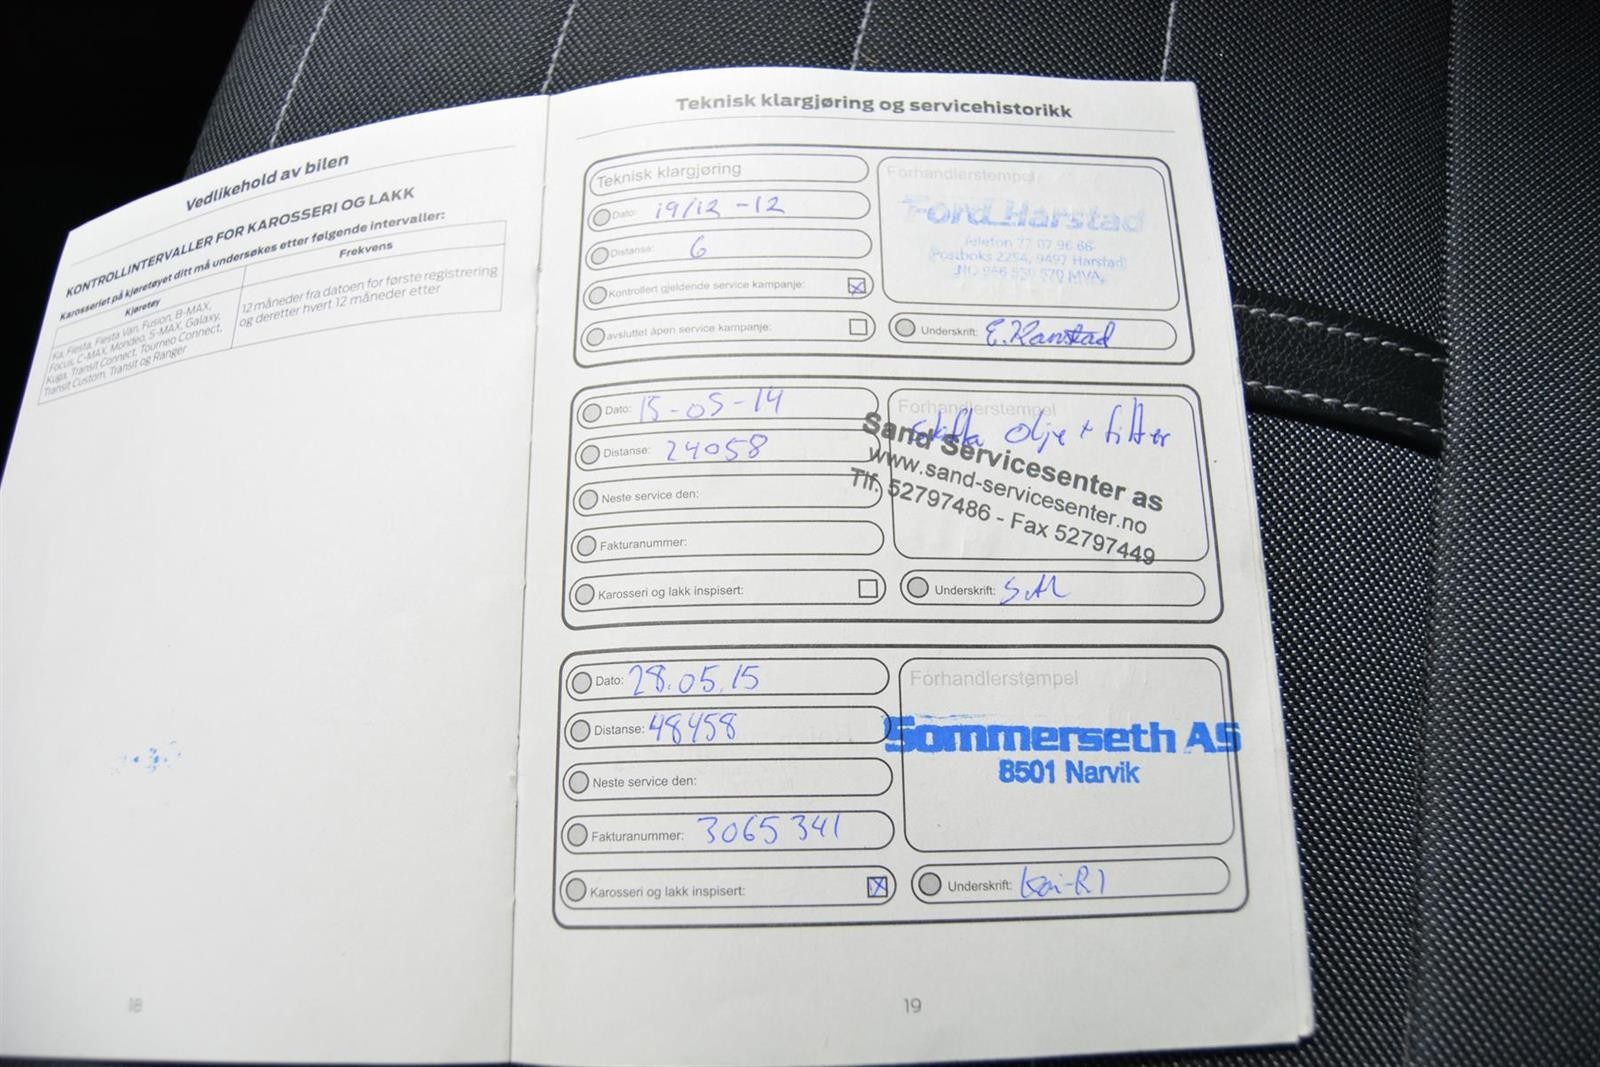 Vedlikehold av bilen
KONTROLLINTERVALLER FOR KAROSSERI OG LAKK
Karosseriet på kjøretøyet ditt må undersøkes etter følgende intervaller:
Kjøretøy
Frekvens
Ka, Fiesta, Fiesta Van, Fusion, B-MAX,
Focus, C-MAX, Mondeo, S-MAX, Galaxy,
Kuga, Transit Connect, Tourneo Connect,
Transit Custom, Transit og Ranger
12 måneder fra datoen for første registrering
og deretter hvert 12 måneder etter
18
Teknisk klargjøring og servicehistorikk
Teknisk klargjøring
Dato: 19/12 -12
Distanse: 6
Kontrollert gjeldende service kampanje:
avsluttet åpen service kampanje:
Forhandlerstempel
Ford Harstad
Telefon 77 07 96 66
Postboks 2254, 9497 Harstad
MVA
Underskrift:
Dato: 15-05-14
Distanse: 24058
Neste service den:
Fakturanummer:
Karosseri og lakk inspisert:
Forhandlerstempel
olje + filter
Sand Servicesenter as
www.sand-servicesenter.no
Tlf. 52797486 - Fax 52797449
Underskrift:
Dato: 28.05.15
Distanse: 48458
Neste service den:
Fakturanummer: 3065341
Karosseri og lakk inspisert:
Forhandlerstempel
Sommerseth AS
8501 Narvik
Underskrift:
19